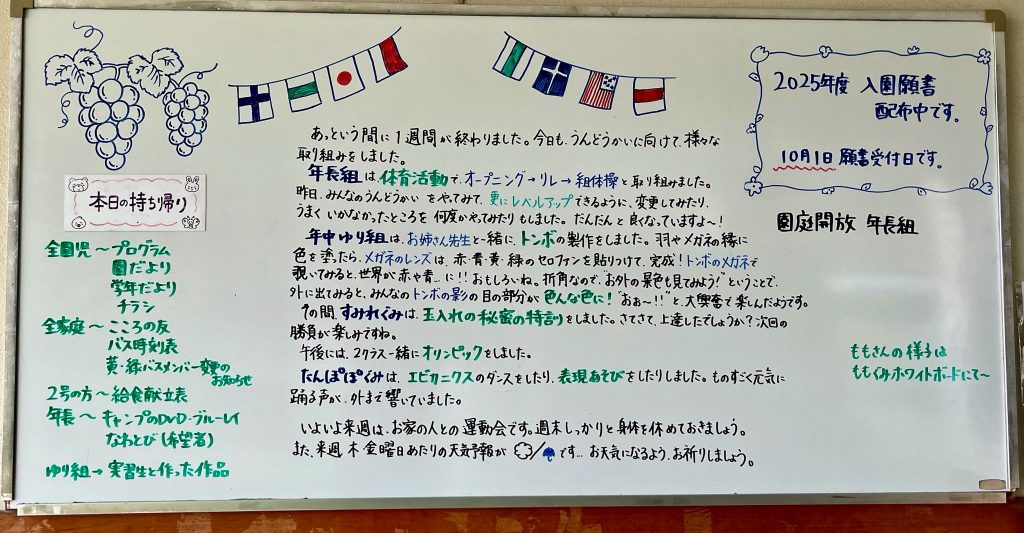 本日の持ち帰り
全園児～プログラム
園だより
学年だより
チラシ
全家庭～こころの友
バス時刻表
黄・緑バスメンバー変更の
お知らせ
2号の方～給食献立表
年長～キャンプのDVD・ブルーレイ
なわとび(希望者)
ゆり組→実習生と作った作品
あっという間に1週間が終わりました。今日も、うんどうかいに向けて、様々な
取り組みをしました。
年長組は体育活動で、オープニング→リレー→組体操と取り組みました。
昨日、みんなのうんどうかいをやってみて、更にレベルアップできるように、変更してみたり、
うまくいかなかったところを何度かやってみたりもしました。だんだんと良くなっていますよ～!
年中ゆり組は、お姉さん先生と一緒に、トンボの製作をしました。羽やメガネの縁に
色を塗ったら、メガネのレンズは、赤・青・黄・緑のセロファンを貼りつけて、完成!トンボのメガネで
覗いてみると、世界が赤や青…に!!おもしろいね。折角なので、"お外の景色も見てみよう!"ということで、
外に出てみると、みんなのトンボの影の目の部分が色んな色に!"おぉ～!!"と、大興奮で楽しんだようです。
その間、すみれぐみは、玉入れの秘密の特訓をしました。さてさて、上達したでしょうか?次回の
勝負が楽しみですね。
午後には、2クラス一緒にオリンピックをしました。
たんぽぽぐみは、エビカニクスのダンスをしたり、表現あそびをしたりしました。ものすごく元気に
踊る声が、外まで響いていました。
いよいよ来週は、お家の人との運動会です。週末しっかりと身体を休めておきましょう。
また、来週 木・金曜日あたりの天気予報が / です… お天気になるよう、お祈りしましょう。
2025年度 入園願書
配布中です。
10月1日 願書受付日です。
園庭開放 年長組
ももさんの様子は
ももぐみホワイトボードにて～